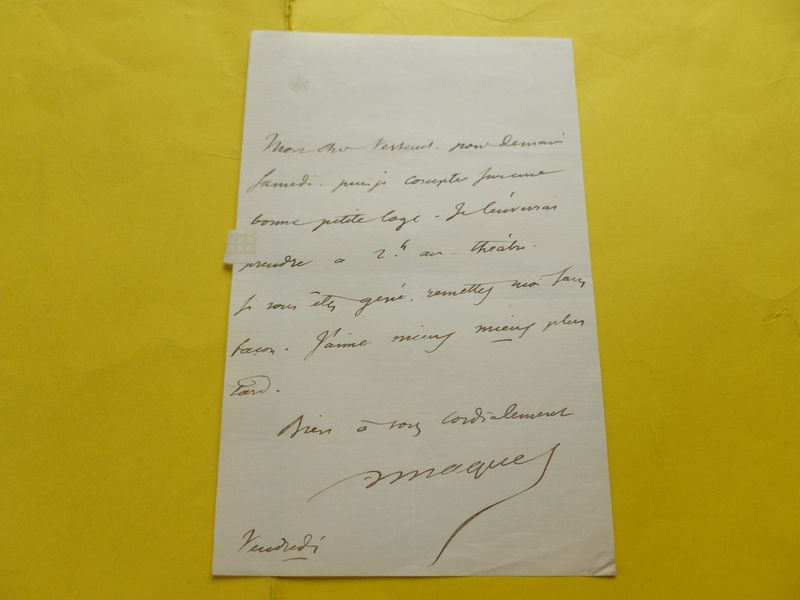 Mon cher Verteuil. pour demain
Samedi. puis-je compter sur une
bonne petite loge. Je l'enverrai
prendre a 2.h au théâtre.
Si vous êtes gêné. remettez moi sans
façon. J'aime mieux mieux plus
tard.
Bien à vous cordialement
AMaquet
Vendredi